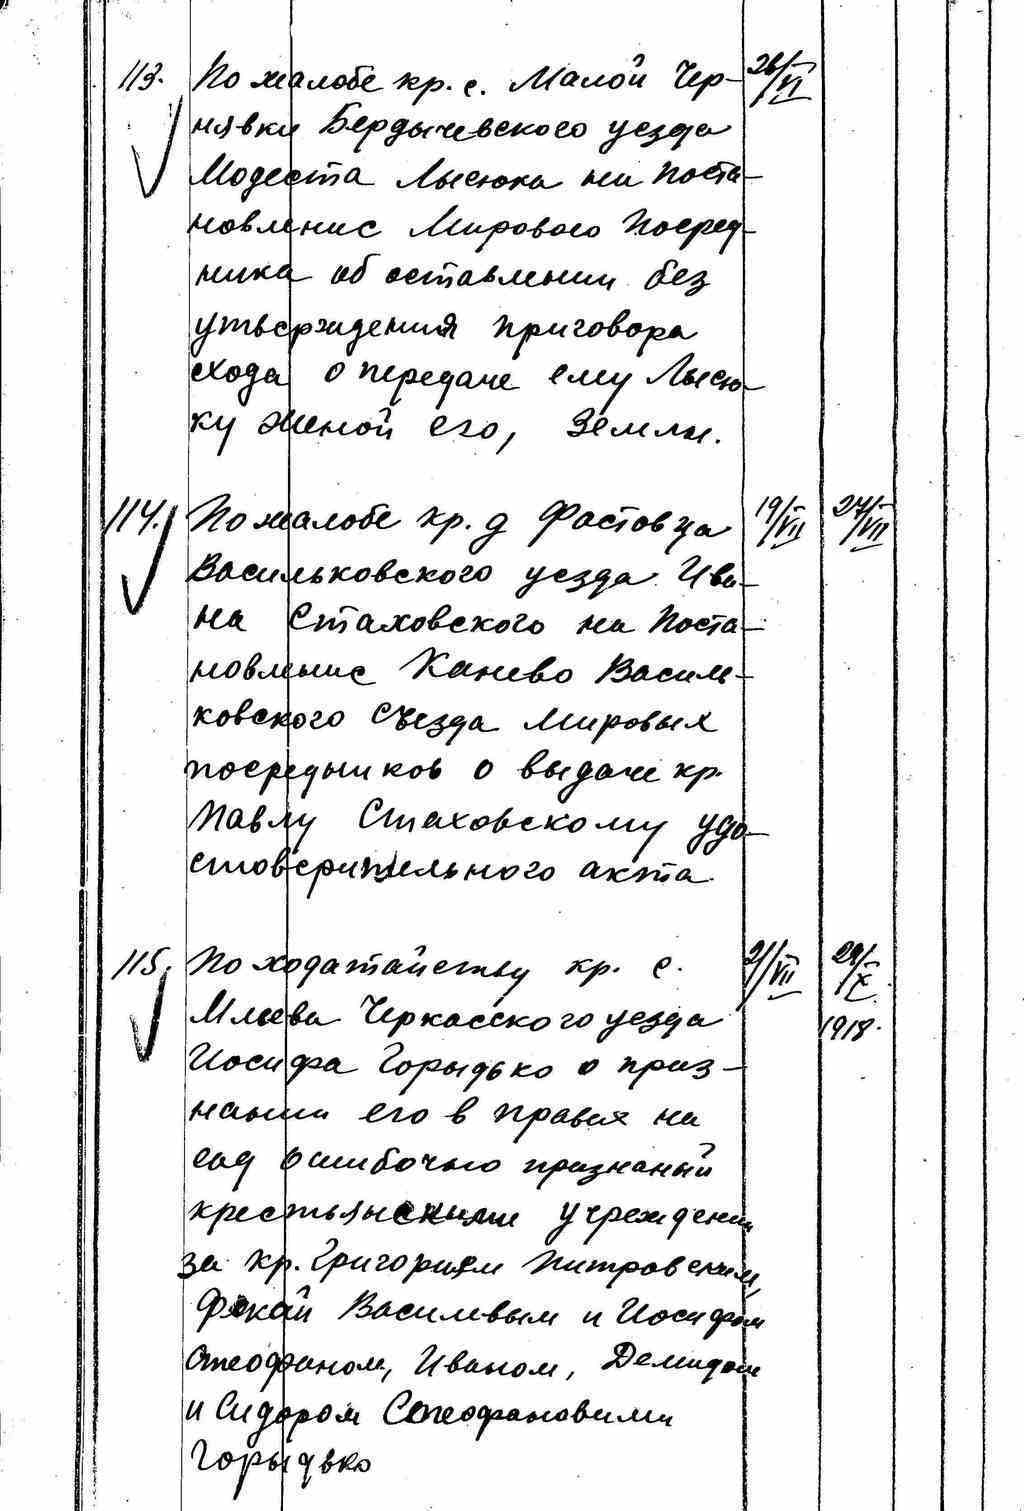 113. По жалобе кр. с. Малой Чер- 26/VI
нявки Бердычевского уезда
Модеста Лысюка на поста-
новление Мирового Посред-
ника об оставлении без
утверждения приговора
схода о передаче ему Лысю-
ку женой его, земли.
114. По жалобе кр. д Фастовца 19/VII 27/VII
Васильковского уезда Ива-
на Стаховского на поста-
новление Канево Василь-
ковского съезда мировых
посредников о выдаче кр.
Павлу Стаховскому удо-
стоверительного акта
115. По ходатайству кр. с. 21/VII 29/X
Млеева Черкасского уезда 1918.
Иосифа Горыдько о приз-
нании его в правах на
сад ошибочно признаный
крестьянскими учреждении
за кр. Григорием Питровским,
Фокай Василевым и Иосифом
Стеофаном, Иваном, Демидом
и Сидором Стеофановыми
Горыдько